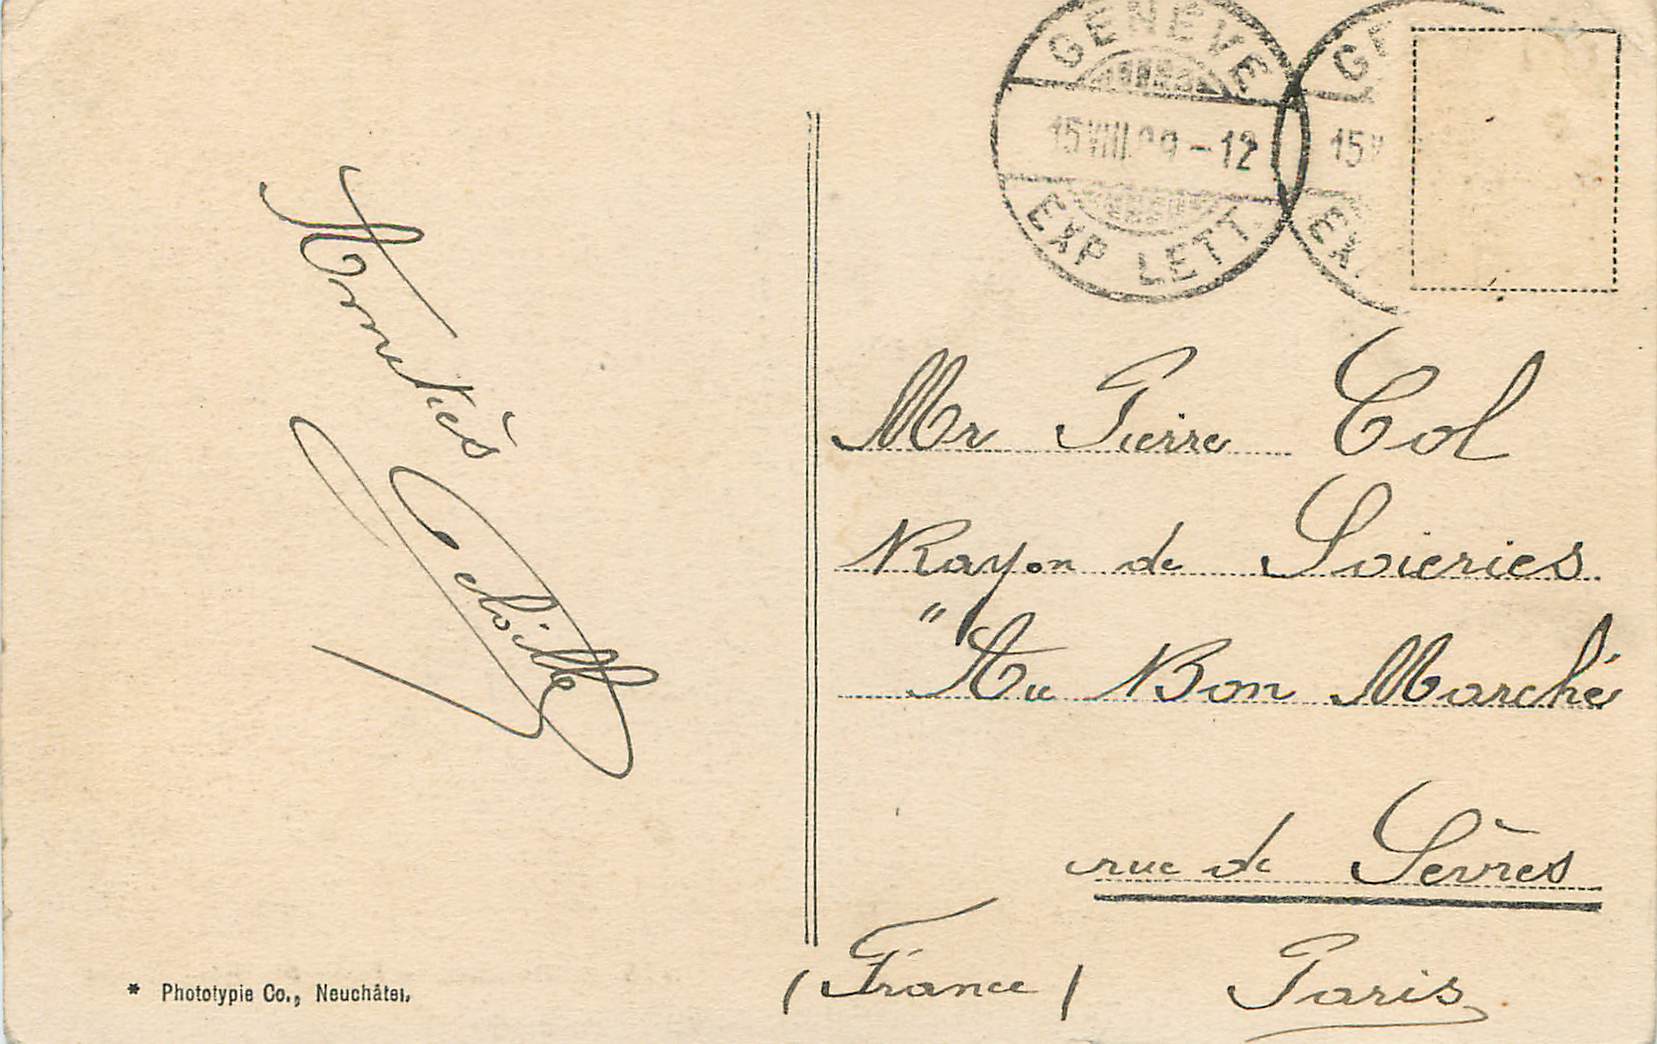 GENÈVE
15 VIII 09 - 12
EXP. LETT.
GE
15 V
EX
Amitiés
Mr Pierre Col
Rayon de Soieries
" Au Bon Marché
rue de Sèvres
(France) Paris
* Phototypie Co., Neuchâtel.